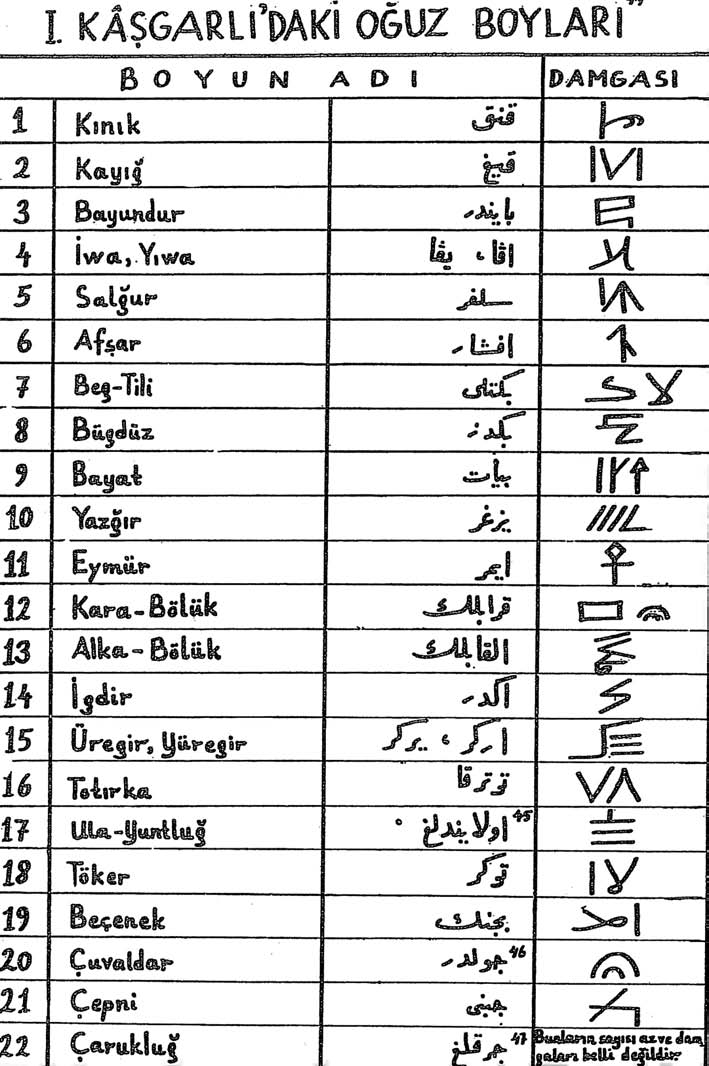 I. KÂŞGARLI'DAKİ OĞUZ BOYLARI
BOYUN ADI DAMGASI
1 Kınık قنق
2 Kayığ قيغ
3 Bayundur بايندر
4 İwa, Yıwa اڤا ، يڤا
5 Salğur سلغر
6 Afşar افشار
7 Beg-Tili بكتلى
8 Bügdüz بكدز
9 Bayat بيات
10 Yazğır يزغر
11 Eymür ايمر
12 Kara-Bölük قرابلك
13 Alka-Bölük القابلك
14 İgdir اكدر
15 Üregir, Yüregir اركر ، يركر
16 Totırka توترقا
17 Ula-Yuntluğ اولايندلغ 45
18 Töker توكر
19 Beçenek بجنك
20 Çuvaldar جولدر 46
21 Çepni جبنى
22 Çarukluğ جرقلغ 47 Bunların sayısı az ve dam
galan belli değildir